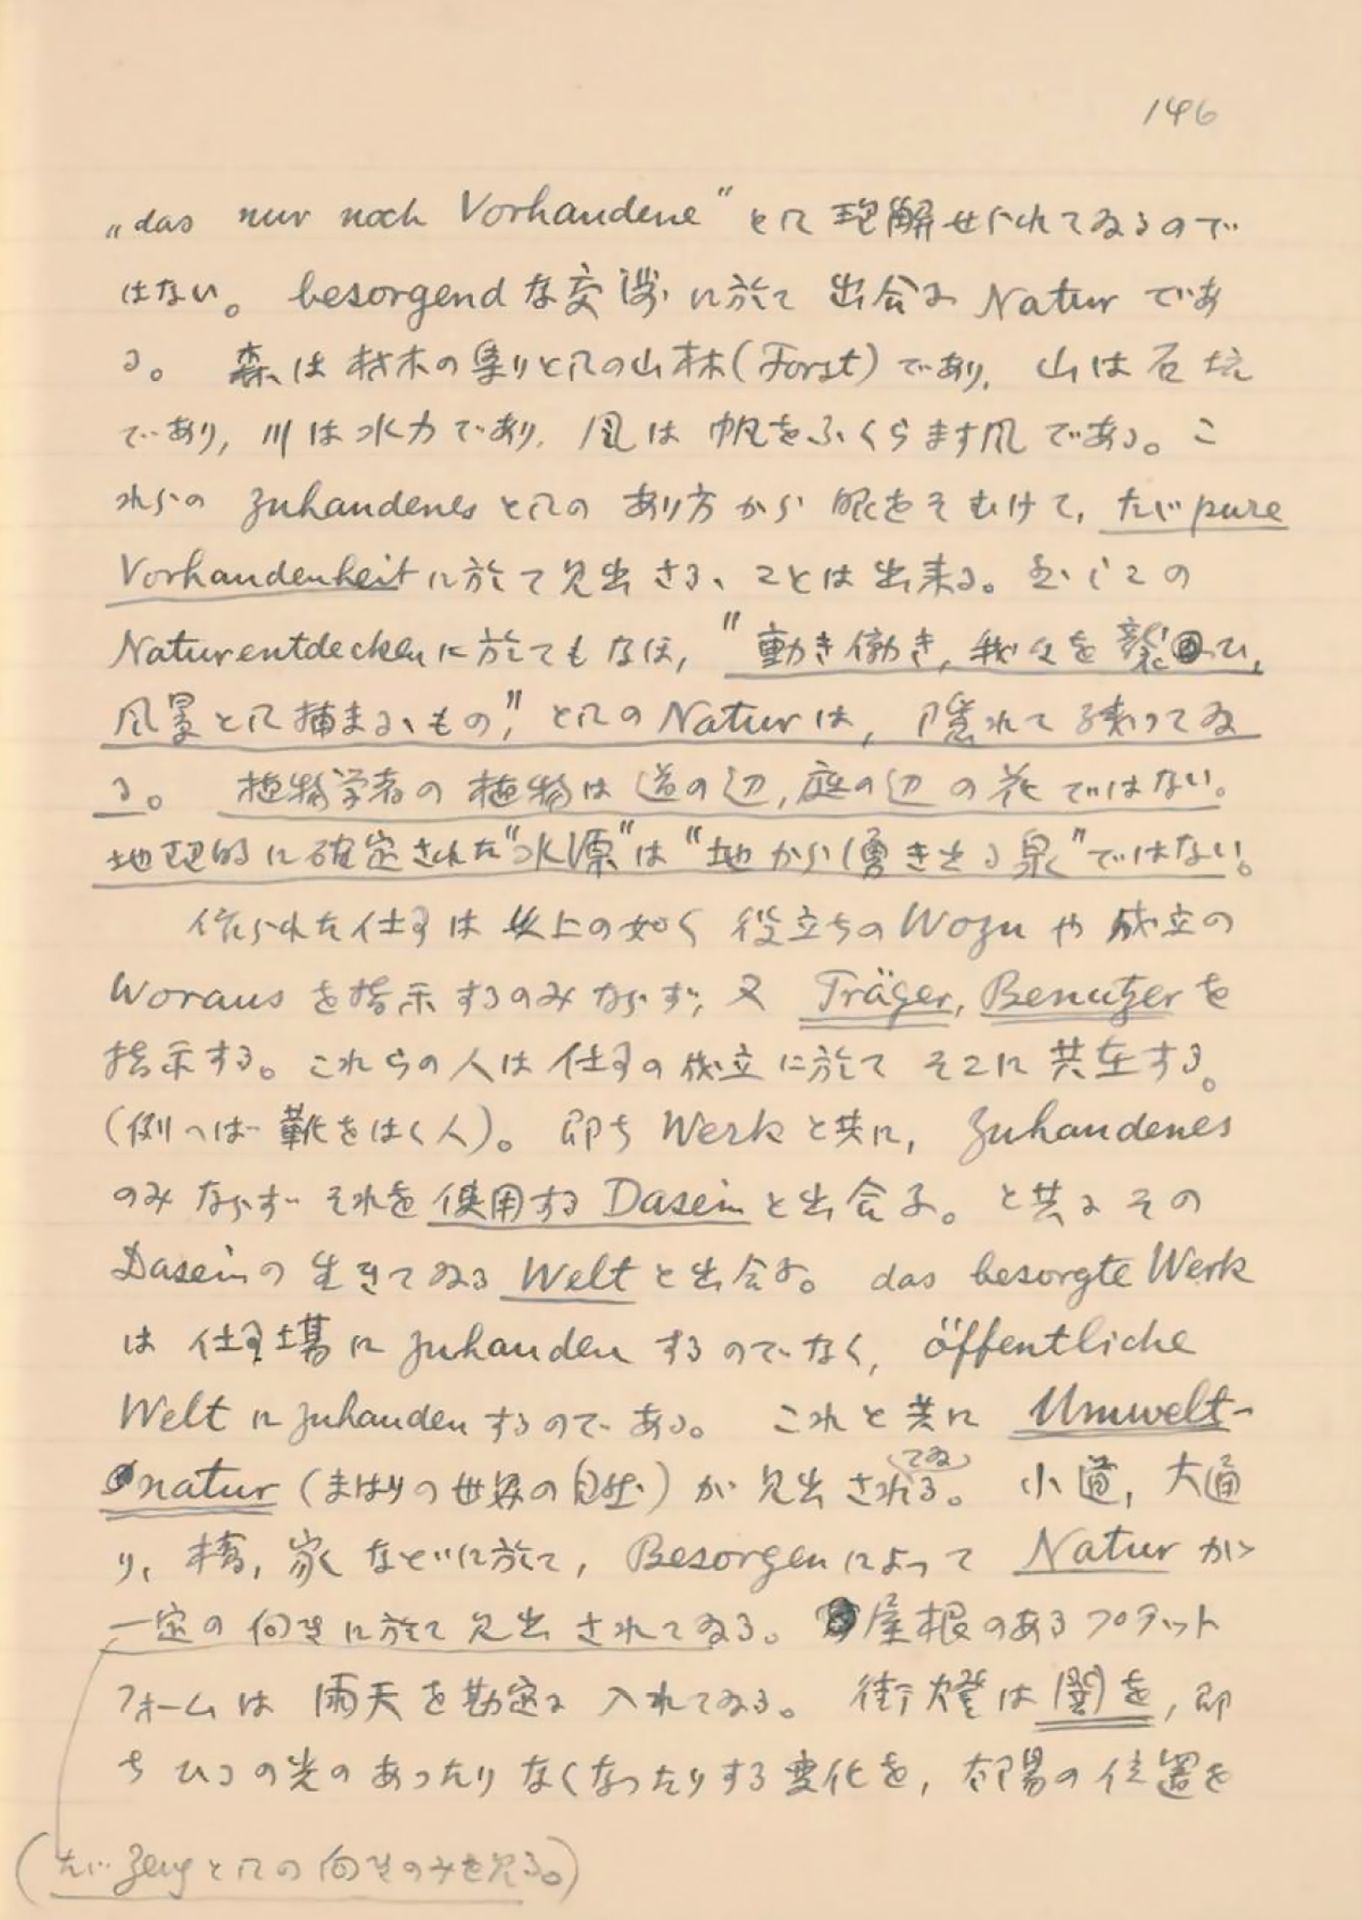 146
„das nur noch Vorhandene" として理解せられてゐるので
はない。 besorgend な交渉に於て出会ふ Natur であ
る。 森は材木の集りとしての山林(Forst)であり, 山は石坑
であり, 川は水力であり, 風は帆をふくらます風である。こ
れらの Zuhandenes としてのあり方から眼をそむけて, たゞ pure
Vorhandenheit に於て見出さるゝことは出来る。 この
Naturentdecken に於てもなほ, "動き働き, 我々を襲ひ,
風景として捕まるゝもの", としての Natur は, 隠れて残ってゐ
る。 植物学者の植物は道の辺, 庭の辺の花ではない。
地理的に確定された"水源"は"地から湧き出る泉"ではない。
作られた仕事は以上の如く役立ちの Wozu や成立の
Woraus を指示するのみならず, 又 Träger, Benutzer を
指示する。これらの人は仕事の成立に於てそこに共在する。
(例へば靴をはく人)。 即ち Werk と共に, Zuhandenes
のみならずそれを使用する Dasein と出会ふ。と共にその
Dasein の生きてゐる Welt と出会ふ。 das besorgte Werk
は仕事場に zuhanden するのでなく, öffentliche
Welt に zuhanden するのである。 これと共に Umwelt-
natur (まはりの世界の自然) が見出されてゐる。 小道, 大通
り, 橋, 家などに於て, Besorgen によって Natur が
一定の向きに於て見出されてゐる。 屋根のあるプラット
フォームは雨天を勘定に入れてゐる。 街燈は闇を, 即
ちひるの光のあったりなくなったりする変化を, 太陽の位置を
(たゞ Zeug としての向きのみを見る。)